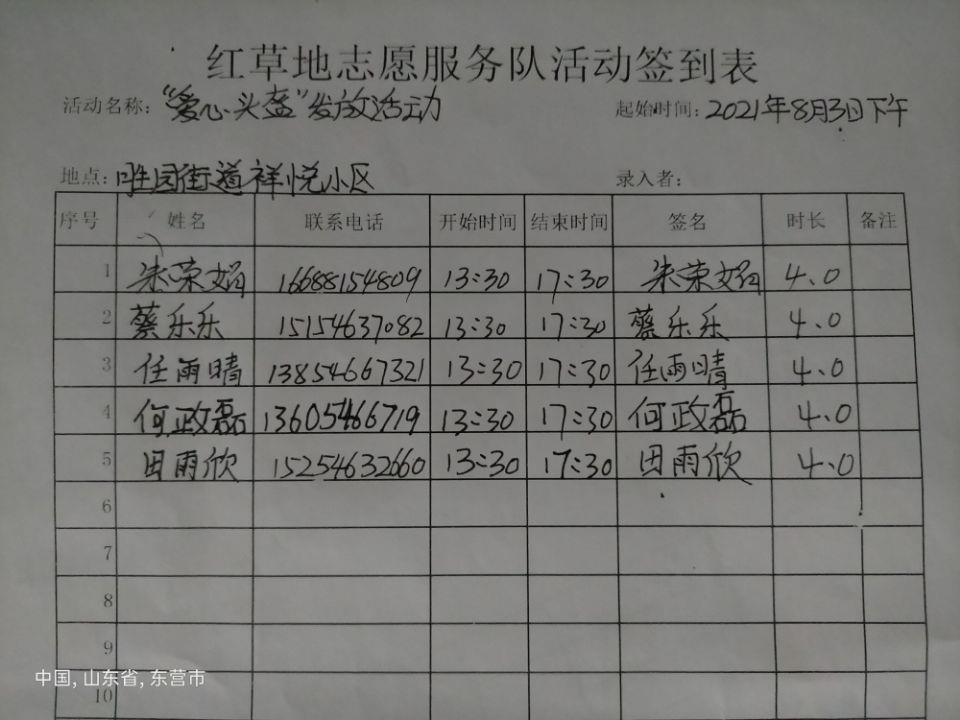 红草地志愿服务队活动签到表
活动名称：“爱心头盔”发放活动 起始时间：2021年8月3日下午
地点：胜园街道祥悦小区 录入者：
序号 姓名 联系电话 开始时间 结束时间 签名 时长 备注
1 朱荣娟 16688154809 13:30 17:30 朱荣娟 4.0
2 蔡乐乐 15154637082 13:30 17:30 蔡乐乐 4.0
3 任雨晴 13854667321 13:30 17:30 任雨晴 4.0
4 何政磊 13605466719 13:30 17:30 何政磊 4.0
5 田雨欣 15254632660 13:30 17:30 田雨欣 4.0
6
7
8
9
10
中国, 山东省, 东营市